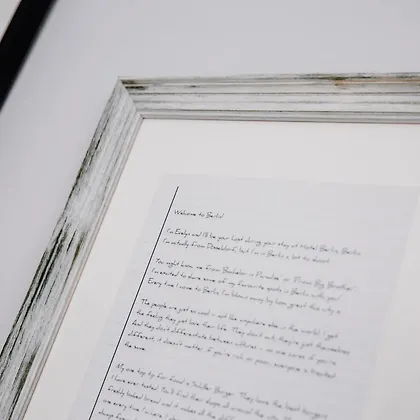 Welcome to Berlin!
I'm Evelyn and I'll be your host during your stay at Hotel Berlin Berlin.
I'm actually from Düsseldorf, but I'm in Berlin a lot to shoot.
You might know me from "Bachelor in Paradise" or "Promi Big Brother".
I'm excited to share some of my favourite spots in Berlin with you!
Every time I come to Berlin, I'm blown away by how great this city is
The people are just so cool - not like anywhere else in the world. I get
the feeling they just love their life. They don't act, they're just themselves
And they don't differentiate between others - no one cares if you're
different, it doesn't matter if you're rich or poor, everyone is treated
the same.
My one top tip for food is Sahiller Burger. They have the best
I have ever tasted. You'll find their shops all around the city.
freshly baked bread and it makes all the